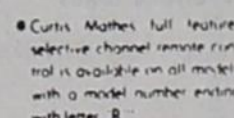 • Curtis Mathes full feature
selective channel remote con
trol is available on all model
with a model number ending
with letter R